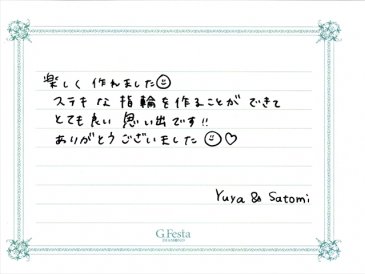 楽しく作れました☺
ステキな指輪を作ることができて
とても良い思い出です!!
ありがとうございました☺♡
Yuya & Satomi
G.Festa